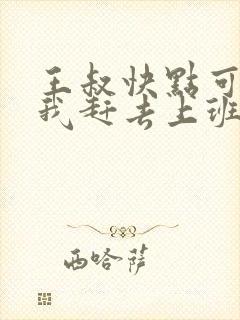 王叔快點可
我赶去上班
西哈萨